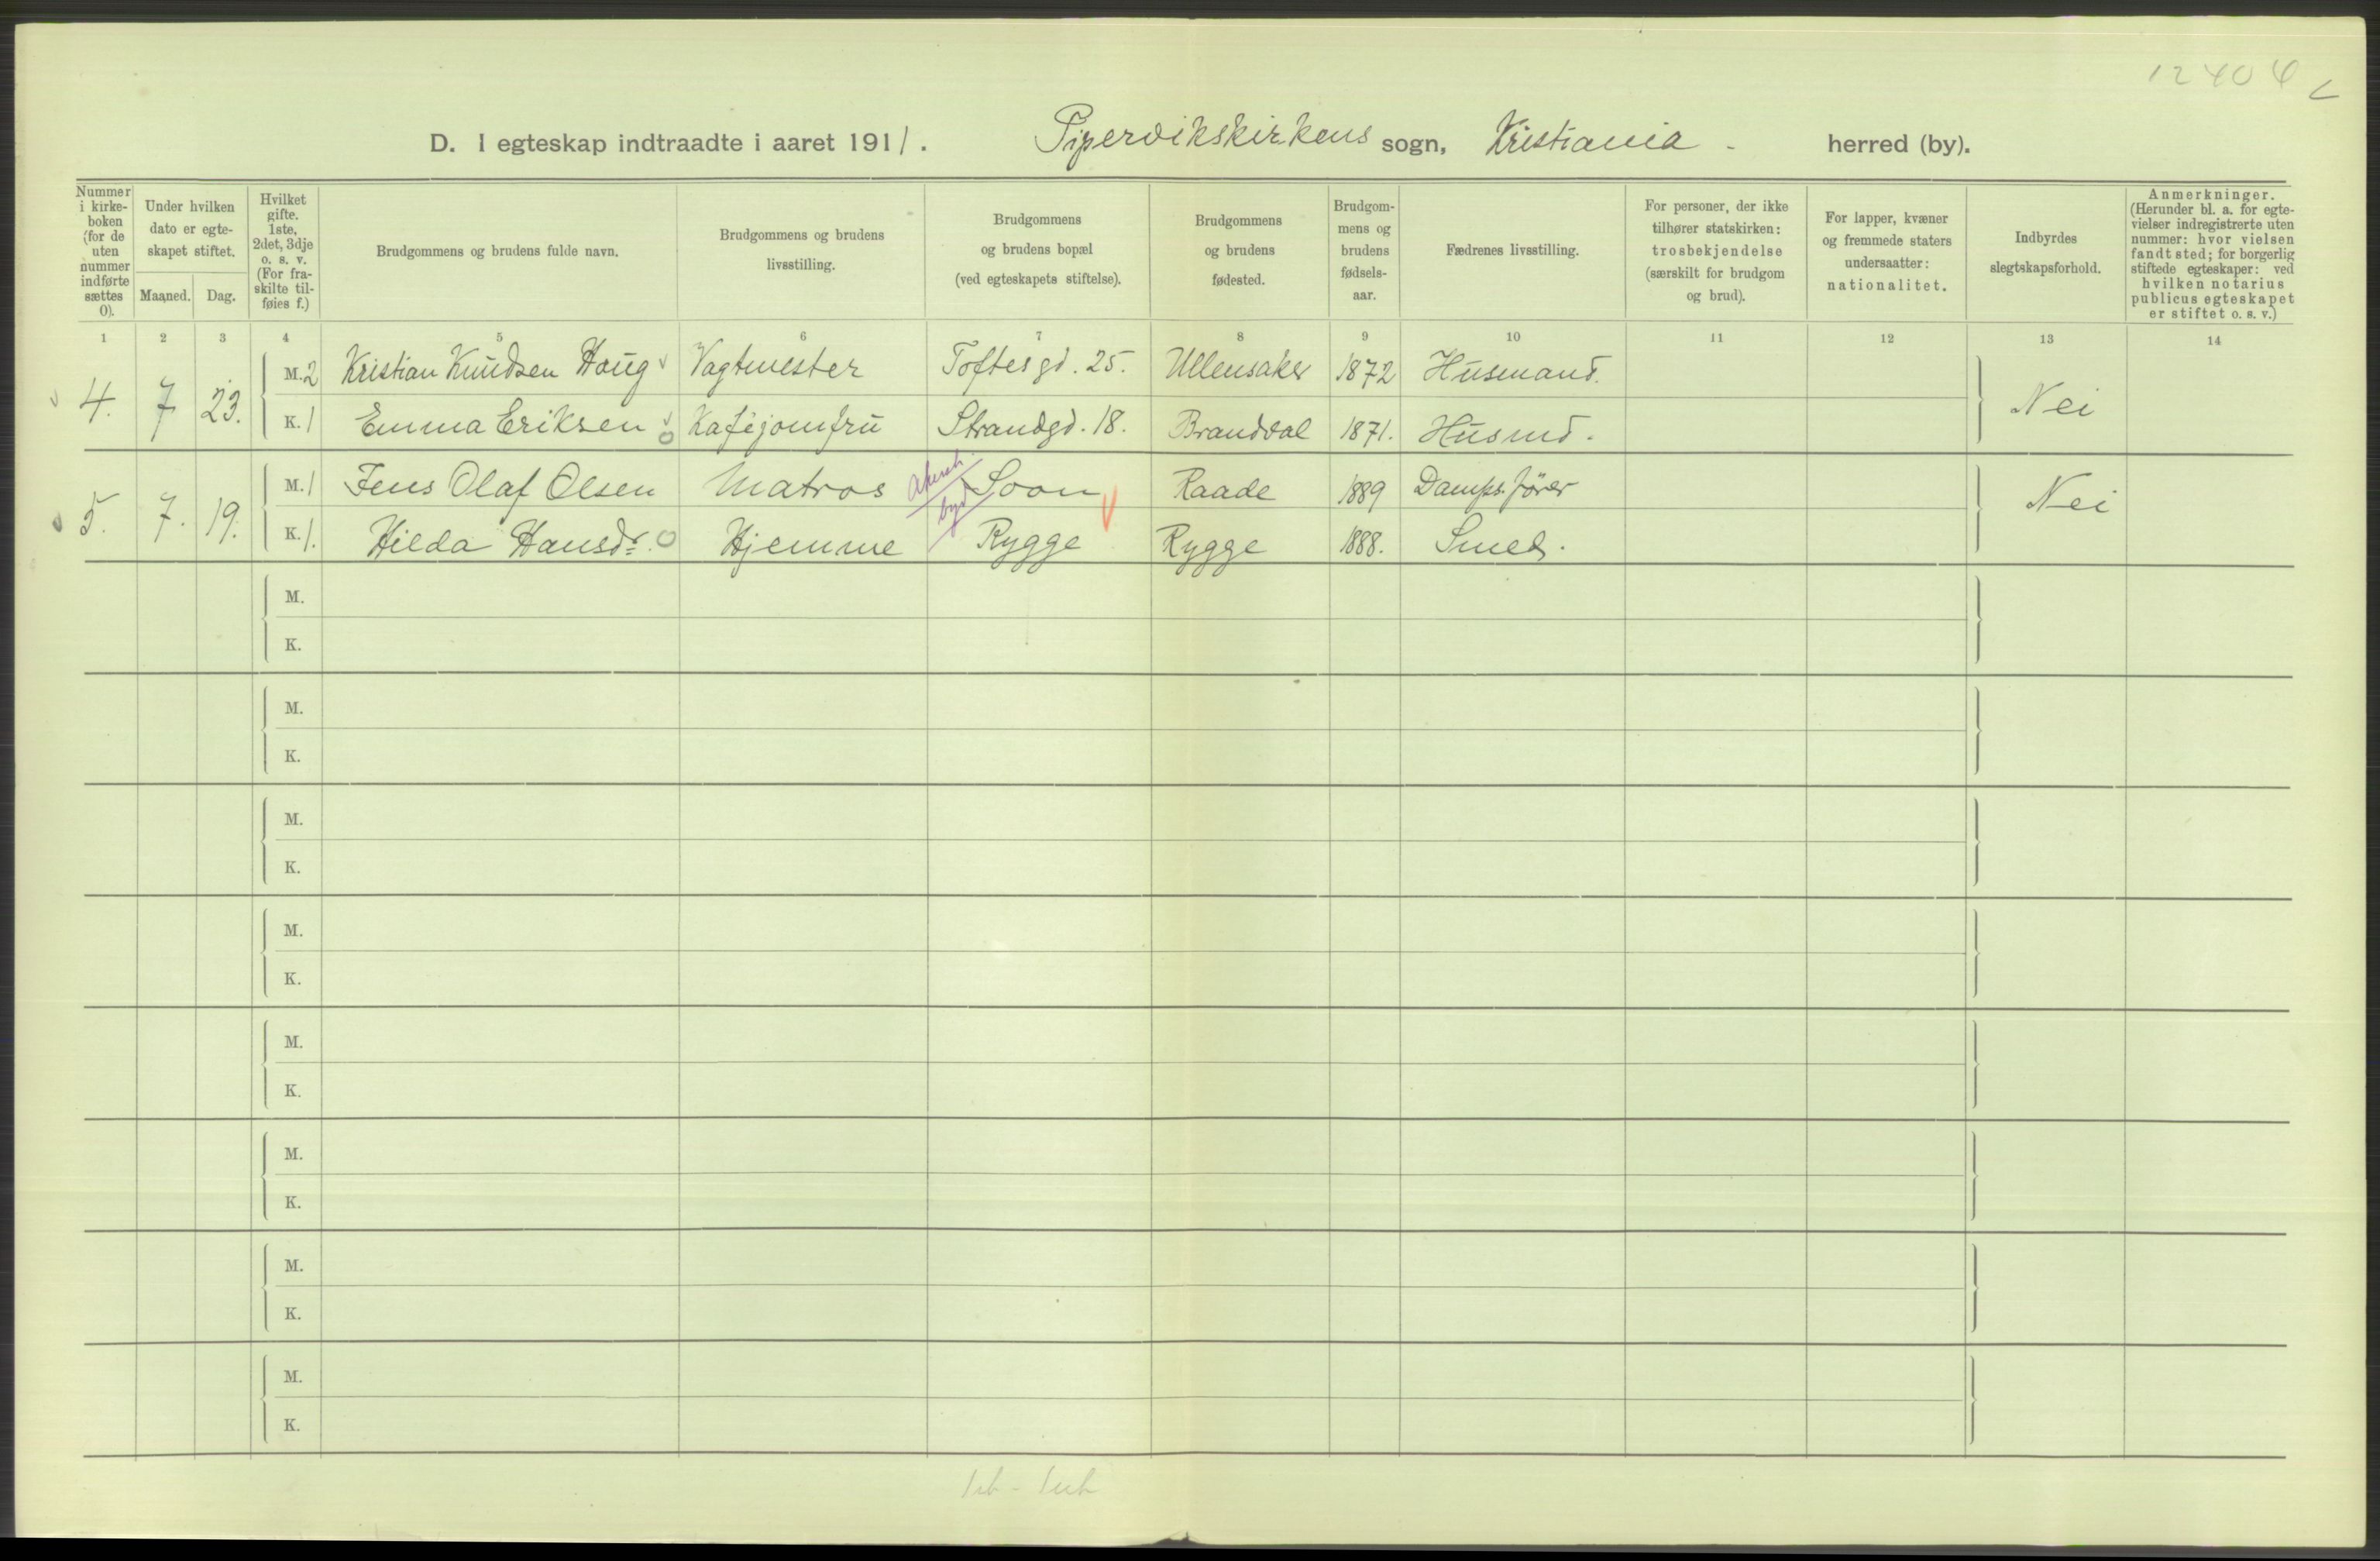 12404
D. I egteskap indtraadte i aaret 1911. Pipervikskirkens sogn, Kristiania - herred (by).
Nummer i kirke-boken (for de uten nummer indførte sættes 0).
Under hvilken dato er egte-skapet stiftet.
Maaned.
Dag.
Hvilket gifte. 1ste, 2det, 3dje o. s. v. (For fra-skilte til-føies f.)
Brudgommens og brudens fulde navn.
Brudgommens og brudens livsstilling.
Brudgommens og brudens bopæl (ved egteskapets stiftelse).
Brudgommens og brudens fødested.
Brudgom-mens og brudens fødsels-aar.
Fædrenes livsstilling.
For personer, der ikke tilhører statskirken: trosbekjendelse (særskilt for brudgom og brud).
For lapper, kvæner og fremmede staters undersaatter: nationalitet.
Indbyrdes slegtskapsforhold.
Anmerkninger. (Herunder bl. a. for egte-vielser indregistrerte uten nummer: hvor vielsen fandt sted; for borgerlig stiftede egteskaper: ved hvilken notarius publicus egteskapet er stiftet o. s. v.)
1 2 3 4 5 6 7 8 9 10 11 12 13 14
4. 7 23. M. 2 Kristian Knudsen Haug Vagtmester Toftesgd. 25. Ullensaker 1872 Husmand. Nei
K. 1 Emma Eriksen Kaféjomfru Strandgd. 18. Brandval 1871. Husmd.
5. 7. 19. M. 1 Jens Olaf Olsen Matros Soon Raade 1889 Dampsfører Nei
K. 1. Hilda Hansdr. Hjemme Rygge Rygge 1888. Smed.
M.
K.
M.
K.
M.
K.
M.
K.
M.
K.
M.
K.
M.
K.
M.
K.